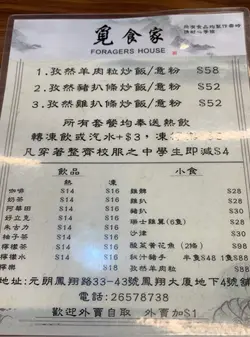 覓食家
FORAGERS HOUSE
所有食品均製作需時
請耐心等候
1.孜然羊肉粒炒飯/意粉 $58
2.孜然豬扒條炒飯/意粉 $52
3.孜然雞扒條炒飯/意粉 $52
所有套餐均奉送熱飲
轉凍飲或汽水+$3,凍
凡穿著整齊校服之中學生即減$4
飲品 小食
熱 凍
咖啡 $14 $16
奶茶 $14 $16
阿華田 $14 $16
好立克 $14 $16
朱古力 $14 $16
柚子茶 $14 $16
檸檬茶 $14 $16
檸檬水 $14 $16
檸樂 $18
雞髀 $28
雞扒 $28
豬扒 $30
瑞士雞翼(6隻) $28
沙津 $28
酸菜
秋汁豬手 半隻$48 1隻$88
孜然羊肉粒
地址:元朗鳳翔路33-43號鳳翔大廈地下4號舖
電話:26578738
歡迎外賣自取 外賣加$1